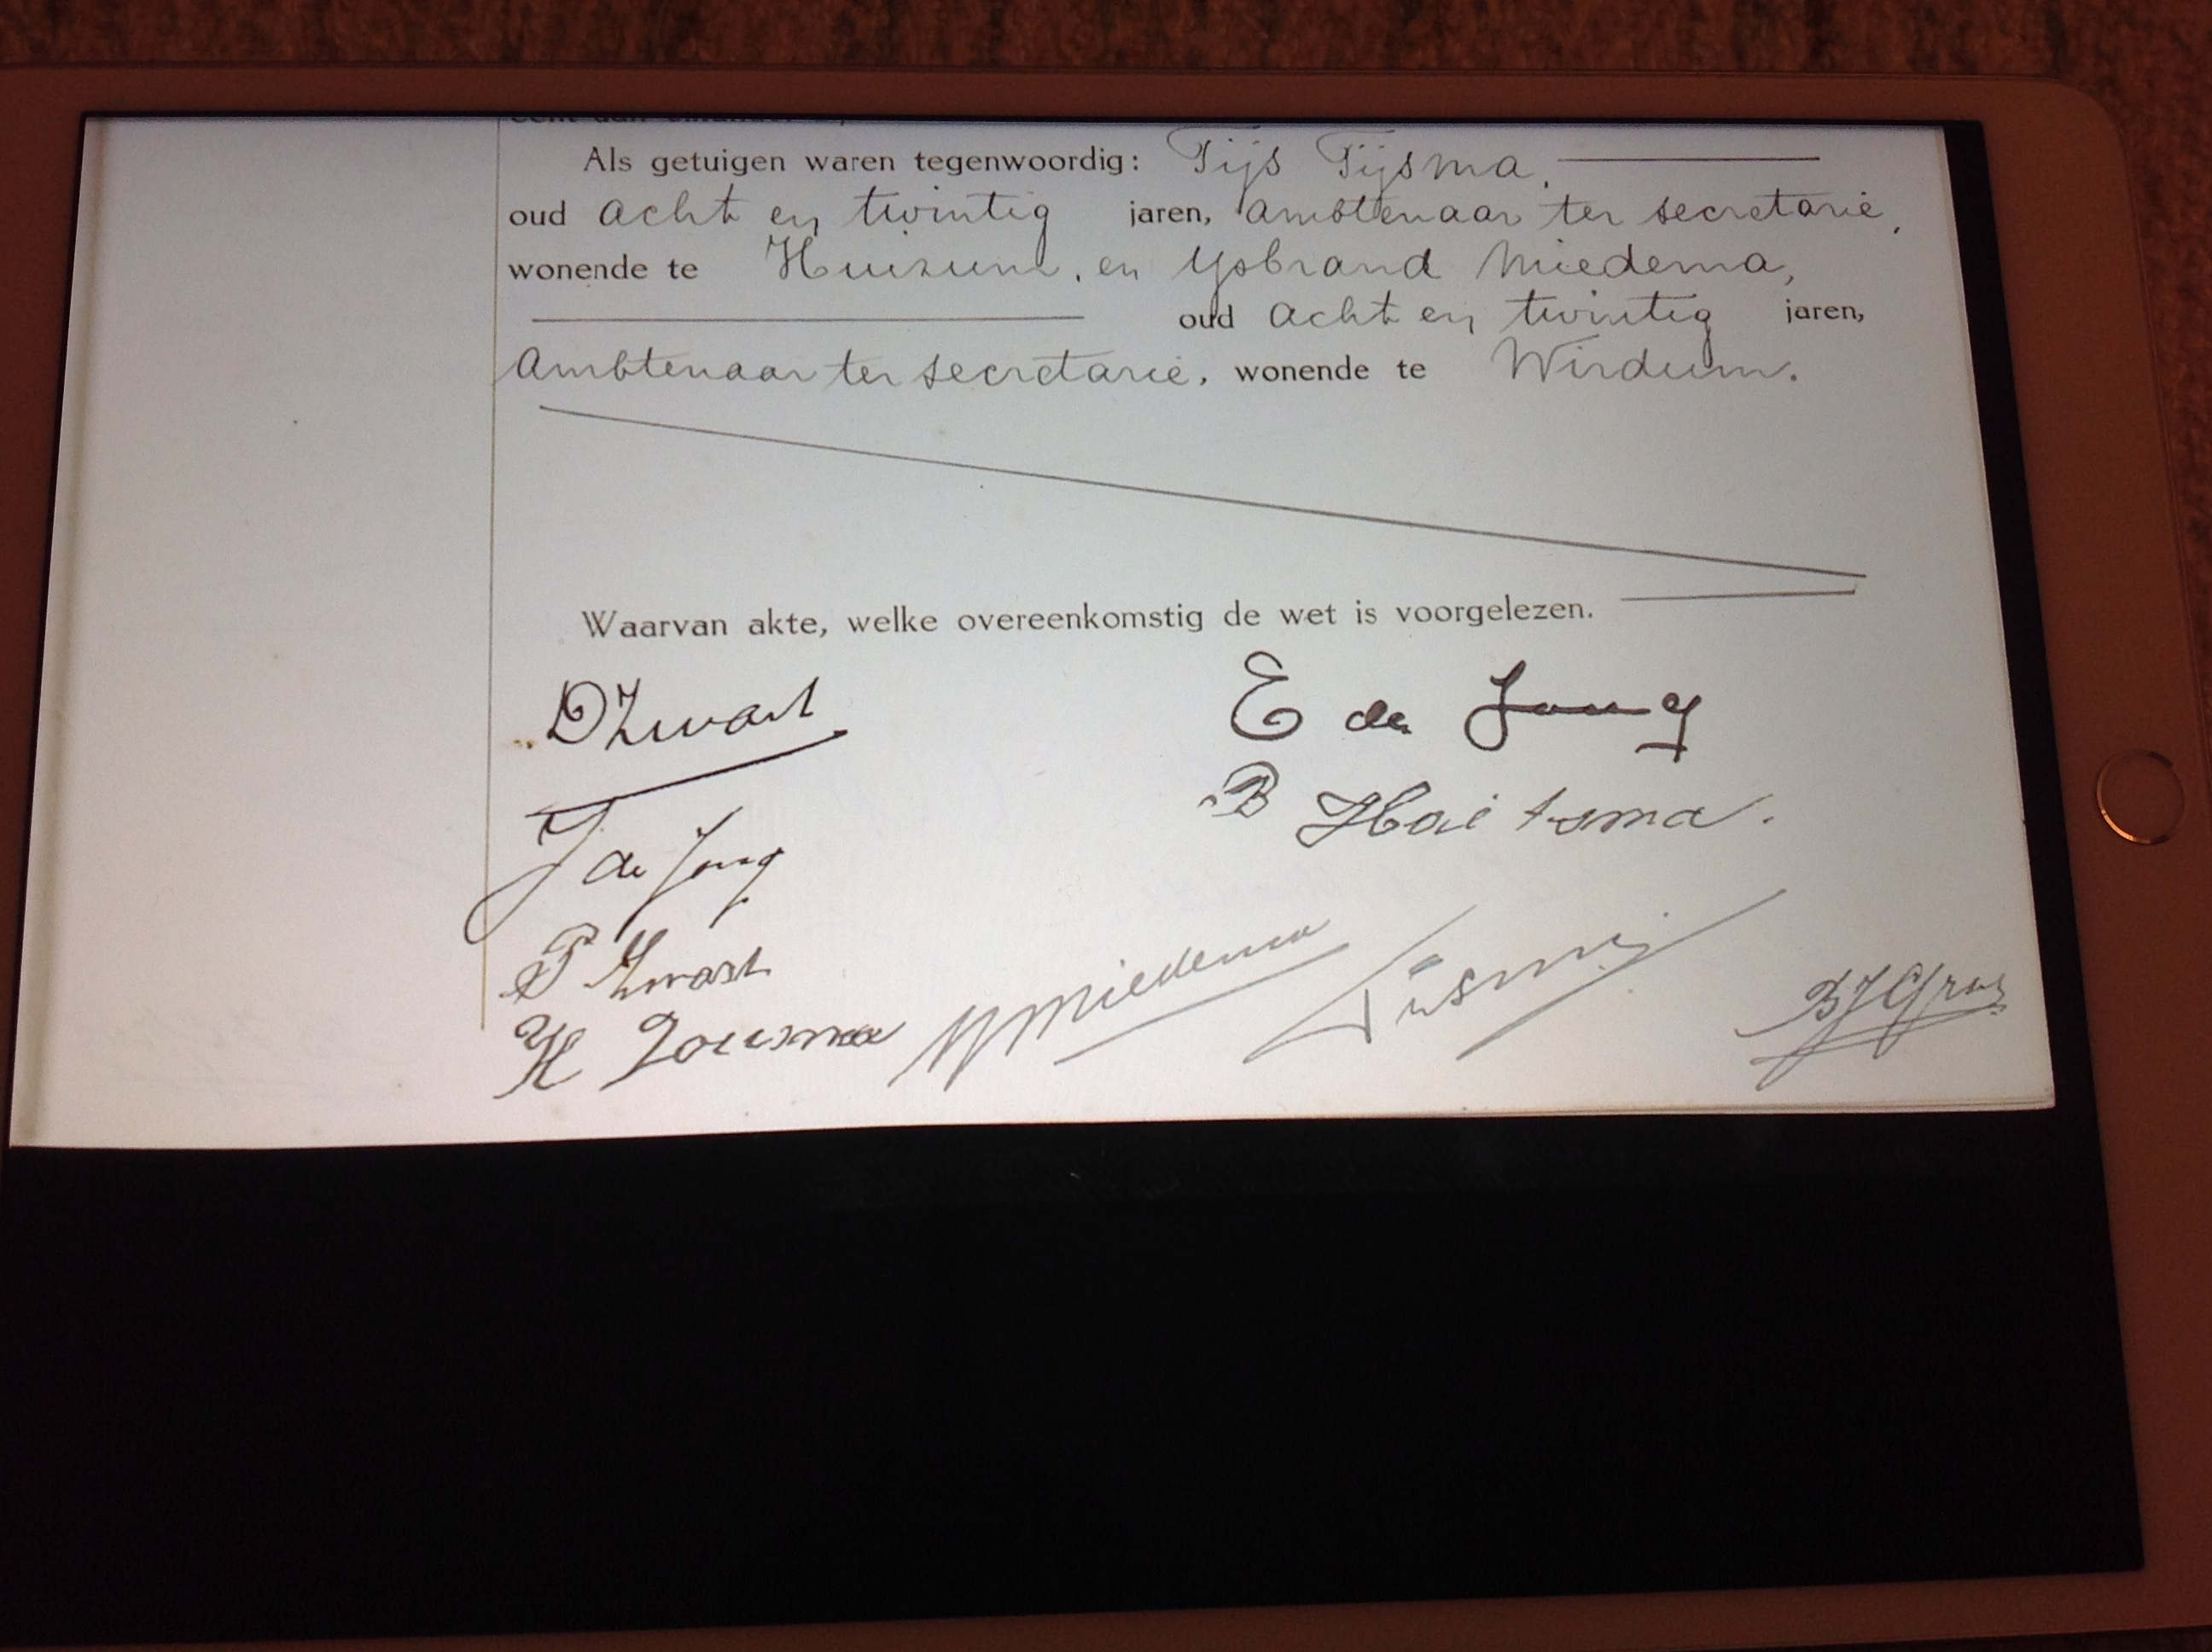 Als getuigen waren tegenwoordig: Tijs Tijsma,
oud acht en twintig jaren, ambtenaar ter secretarie,
wonende te Huizum, en Ysbrand Miedema,
oud acht en twintig jaren,
ambtenaar ter secretarie, wonende te Wirdum.
Waarvan akte, welke overeenkomstig de wet is voorgelezen.
D Zwart
E de Jong
J de Jong
B Haitsma.
P Zwart
Y Miedema
H